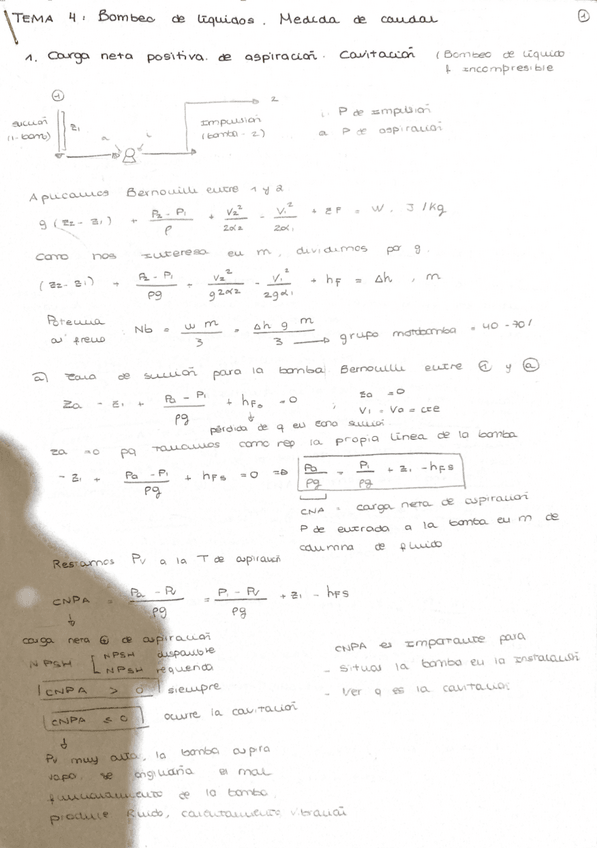 TEMA 4: Bombeo de líquidos. Medida de caudal
1
1. Carga neta positiva de aspiración. Cavitación (Bombeo de líquido
incompresible
1
2
succión
(1-bomb)
z1
a
i
Impulsión
(bomba - 2)
i. P de impulsión
a. P de aspiración
Aplicamos Bernouilli entre 1 y 2
g (z2 - z1) + P2 - P1 / ρ + V2² / 2α2 - V1² / 2α1 + ΣF = W, J/kg
Como nos interesa en m, dividimos por g.
(z2 - z1) + P2 - P1 / ρg + V2² / g2α2 - V1² / 2gα1 + hF = Δh, m
Potencia
al freno: Nb = w m / 3 = Δh g m / 3 → grupo motobomba = 40 - 70%
a) Zona de succión para la bomba: Bernouilli entre 1 y a
za - z1 + Pa - P1 / ρg + hFs = 0 ; za = 0
V1 = Va = cte
pérdida de q en zona succi.
za = 0 pq tomamos como rep la propia línea de la bomba
- z1 + Pa - P1 / ρg + hFs = 0 ⇒ Pa / ρg = P1 / ρg + z1 - hFs
CNA = carga neta de aspiración
P de entrada a la bomba en m de
columna de fluido
Restamos Pv a la T de aspiración
CNPA = Pa - Pv / ρg = P1 - Pv / ρg + z1 - hFs
↓
carga neta ⊕ de aspiración
NPSH [ NPSH disponible
NPSH requerida
CNPA > 0 siempre
CNPA ≤ 0 ocurre la cavitación
↓
Pv muy alta, la bomba aspira
vapor, se origina el mal
funcionamiento de la bomba.
produce Ruido, calentamiento, vibración
CNPA es importante para
- Situar la bomba en la instalación
- Ver q es la cavitación